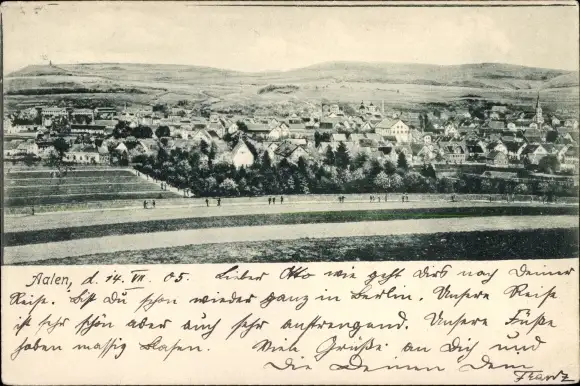 Aalen, d. 14. VII. 05. Lieber Otto wie geht Dirs nach Deiner
Reise. Bist Du schon wieder ganz in Berlin. Unsere Reise
ist sehr schön aber auch sehr anstrengend. Unsere Füße
haben massig Blasen. Viele Grüße an Dich und
die Deinen Dein
Frantz